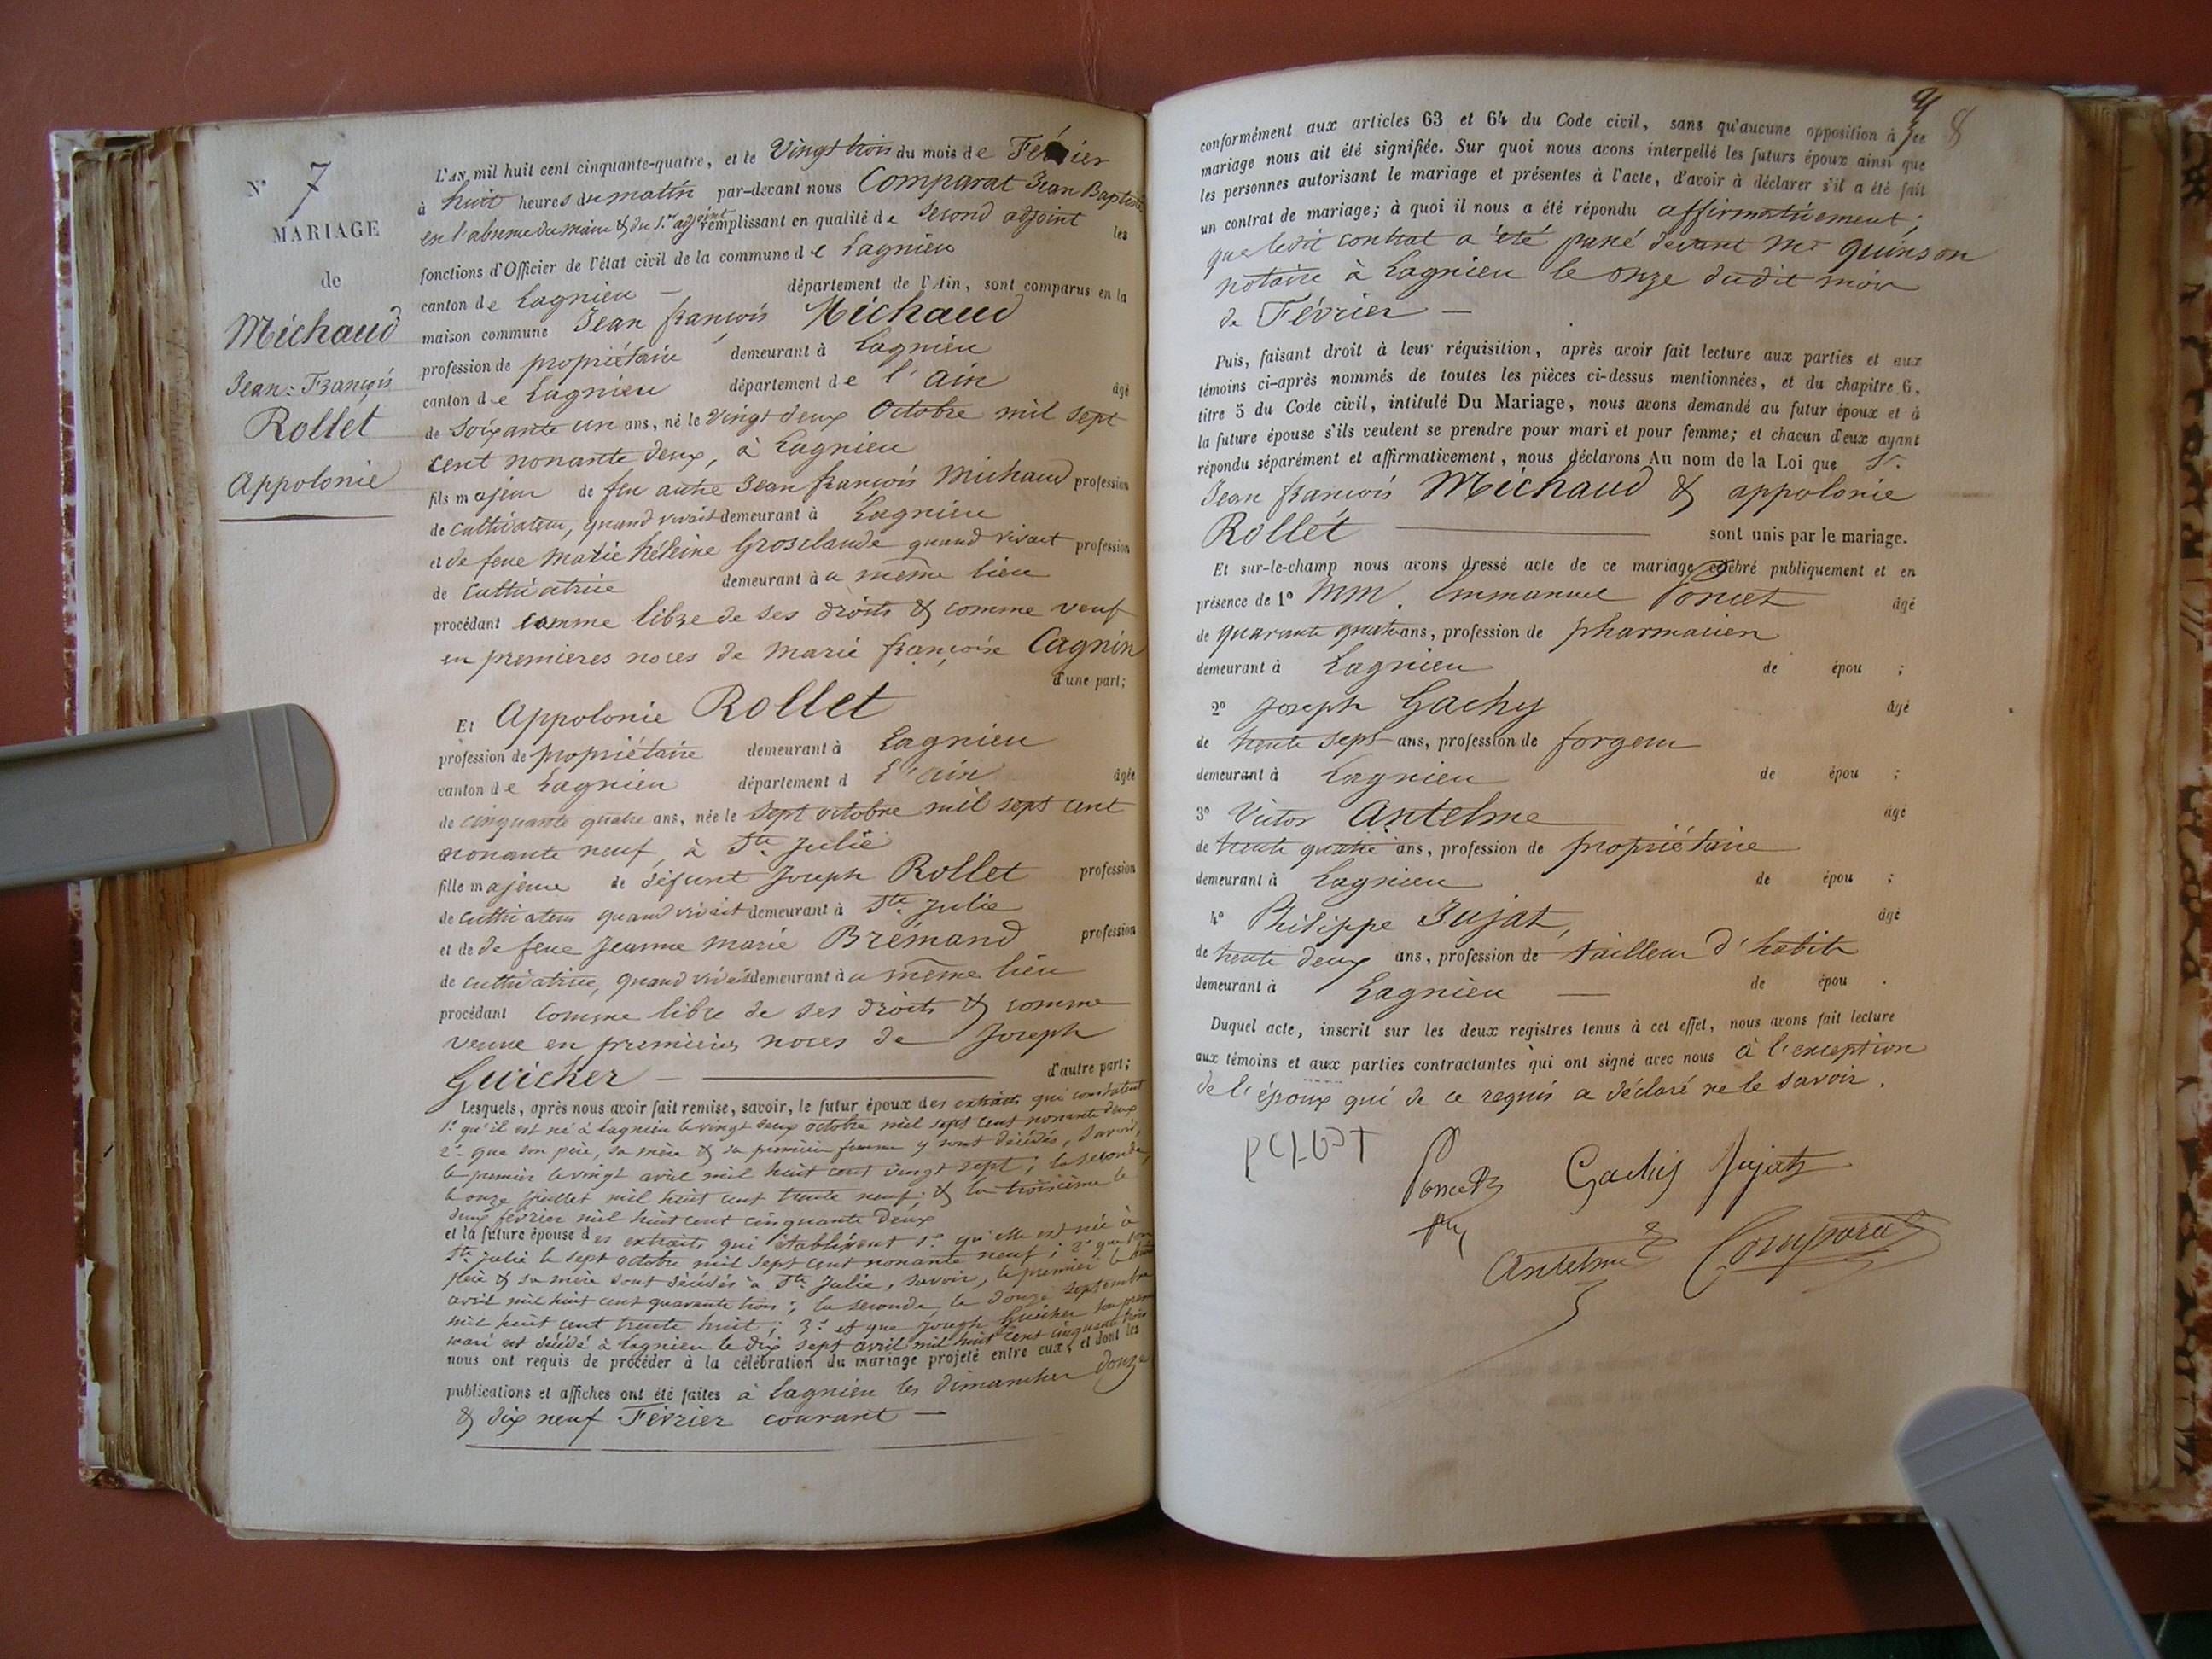 N° 7
MARIAGE
de
Michaud
Jean-François
Rollet
Appolonie
L'AN mil huit cent cinquante-quatre, et le Vingt trois du mois de Février
à huit heures du matin par-devant nous Comparat Jean Baptiste
en l'absence du maire & du 1er adjoint remplissant en qualité de second adjoint les
fonctions d'Officier de l'état civil de la commune de Lagnieu
canton de Lagnieu — département de l'Ain, sont comparus en la
maison commune Jean françois Michaud
profession de propriétaire demeurant à Lagnieu
canton de Lagnieu département de l'Ain âgé
de soixante un ans, né le vingt deux Octobre mil sept
cent nonante deux, à Lagnieu
fils majeur de feu autre Jean françois Michaud profession
de cultivateur, quand vivait demeurant à Lagnieu
et de feue Marie héleine Grosclaude quand vivait profession
de cultivatrice demeurant à u même lieu
procédant comme libre de ses droits & comme veuf
en premieres noces de Marie françoise Cagnin
d'une part;
Et Appolonie Rollet
profession de propriétaire demeurant à Lagnieu
canton de Lagnieu département d l'ain âgée
de cinquante quatre ans, née le sept octobre mil sept cent
nonante neuf, à Ste Julie
fille majeure de défunt Joseph Rollet profession
de cultivateur quand vivait demeurant à Ste Julie
et de de feue Jeanne marie Brémand profession
de cultivatrice, quand vivait demeurant à u même lieu
procédant comme libre de ses droits & comme
veuve en premières noces de Joseph
Guicher — d'autre part;
Lesquels, après nous avoir fait remise, savoir, le futur époux des extraits qui constatent
1° qu'il est né à Lagnieu le vingt deux octobre mil sept cent nonante deux
2° que son père, sa mère & sa première femme y sont décédés, savoir,
le premier le vingt avril mil huit cent vingt sept; la seconde,
le onze juillet mil huit cent trente neuf; & la troisième le
deux février mil huit cent cinquante deux
et la future épouse des extraits qui établissent 1° qu'elle est née à
Ste Julie le sept octobre mil sept cent nonante neuf; 2° que son
père & sa mère sont décédés à Ste Julie, savoir, le premier le
avril mil huit cent quarante trois; la seconde le douze septembre
mil huit cent trente huit; 3° et que Joseph Guicher son premier
mari est décédé à Lagnieu le dix sept avril mil huit cent cinquante trois
nous ont requis de procéder à la célébration du mariage projeté entre eux, et dont les
publications et affiches ont été faites à Lagnieu les dimanches douze
& dix neuf Février courant —
8
conformément aux articles 63 et 64 du Code civil, sans qu'aucune opposition à ce
mariage nous ait été signifiée. Sur quoi nous avons interpellé les futurs époux ainsi que
les personnes autorisant le mariage et présentes à l'acte, d'avoir à déclarer s'il a été fait
un contrat de mariage; à quoi il nous a été répondu affirmativement;
que ledit contrat a été passé devant Me Quinson
notaire à Lagnieu le onze dudit mois
de Février —
Puis, faisant droit à leur réquisition, après avoir fait lecture aux parties et aux
témoins ci-après nommés de toutes les pièces ci-dessus mentionnées, et du chapitre 6,
titre 5 du Code civil, intitulé Du Mariage, nous avons demandé au futur époux et à
la future épouse s'ils veulent se prendre pour mari et pour femme; et chacun d'eux ayant
répondu séparément et affirmativement, nous déclarons Au nom de la Loi que Sr.
Jean françois Michaud & appolonie
Rollet — sont unis par le mariage.
Et sur-le-champ nous avons dressé acte de ce mariage célébré publiquement et en
présence de 1° MM. Emmanuel Poncet âgé
de quarante quatre ans, profession de pharmacien
demeurant à Lagnieu de épou ;
2° Joseph Gachy âgé
de trente sept ans, profession de forgeur
demeurant à Lagnieu de épou ;
3° Victor Antelme âgé
de trente quatre ans, profession de propriétaire
demeurant à Lagnieu de épou ;
4° Philippe Jujat, âgé
de trente deux ans, profession de tailleur d'habits
demeurant à Lagnieu — de épou .
Duquel acte, inscrit sur les deux registres tenus à cet effet, nous avons fait lecture
aux témoins et aux parties contractantes qui ont signé avec nous à l'exception
de l'époux qui de ce requis a déclaré ne le savoir.
Poncet Gachy Jujat
phn
Antelme Comparat